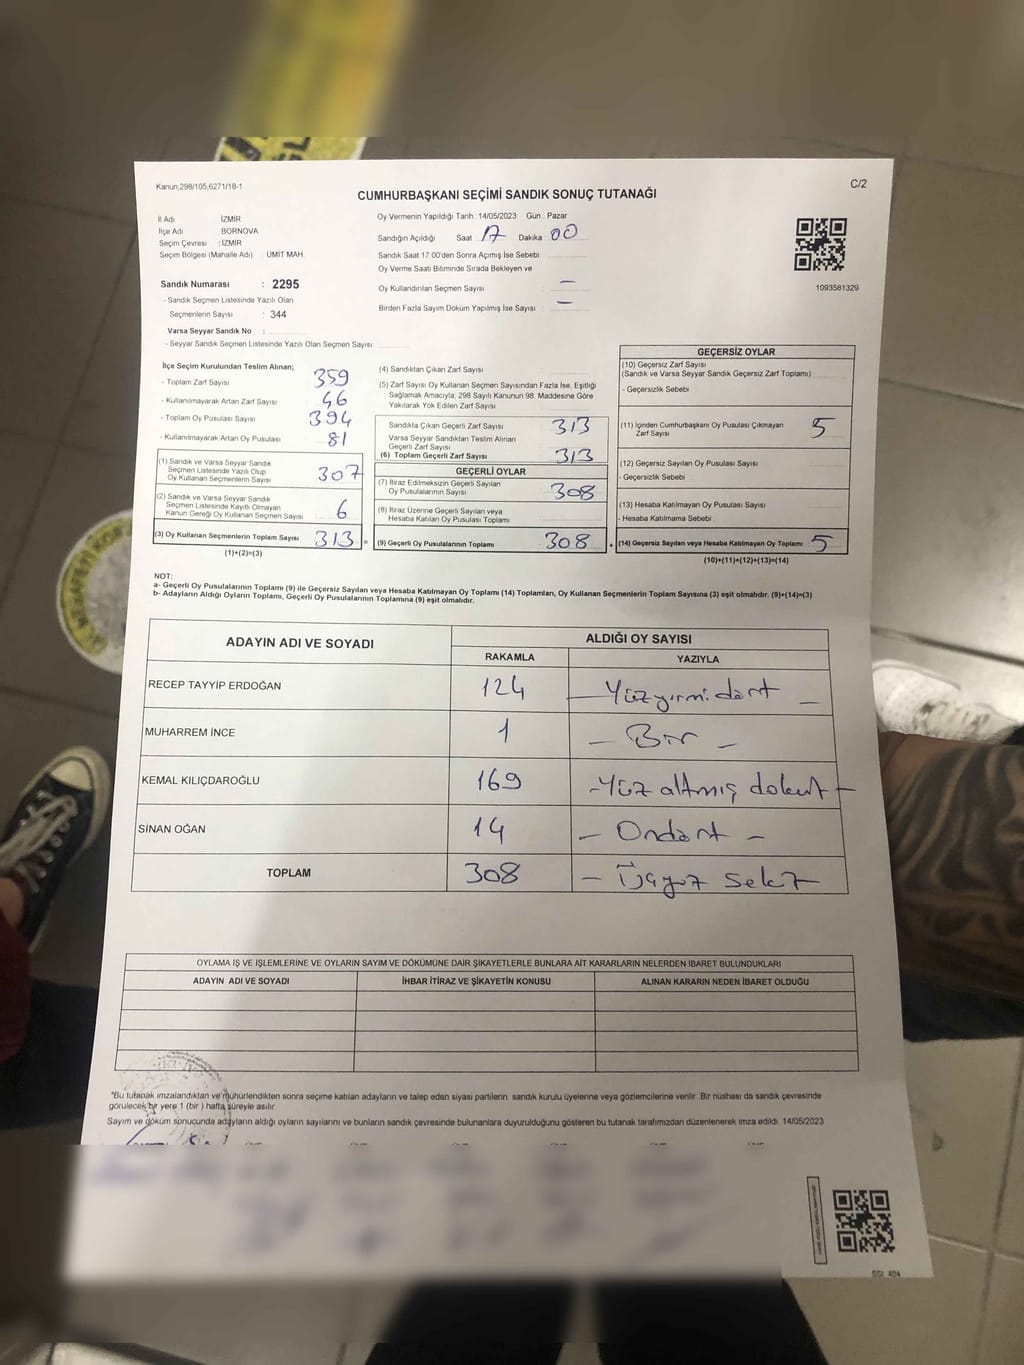 Kanun,298/105,6271/18-1
C/2
CUMHURBAŞKANI SEÇİMİ SANDIK SONUÇ TUTANAĞI
İl Adı İZMİR
İlçe Adı BORNOVA
Seçim Çevresi : İZMİR
Seçim Bölgesi (Mahalle Adı) ÜMİT MAH.
Sandık Numarası : 2295
- Sandık Seçmen Listesinde Yazılı Olan
Seçmenlerin Sayısı : 344
Varsa Seyyar Sandık No :
- Seyyar Sandık Seçmen Listesinde Yazılı Olan Seçmen Sayısı :
Oy Vermenin Yapıldığı Tarih : 14/05/2023 Gün : Pazar
Sandığın Açıldığı Saat 17 Dakika 00
Sandık Saat 17:00'den Sonra Açımış İse Sebebi
Oy Verme Saati Bitiminde Sırada Bekleyen ve
Oy Kullandırılan Seçmen Sayısı : —
Birden Fazla Sayım Döküm Yapılmış İse Sayısı : —
1093581329
İlçe Seçim Kurulundan Teslim Alınan;
- Toplam Zarf Sayısı 359
- Kullanılmayarak Artan Zarf Sayısı 46
- Toplam Oy Pusulası Sayısı 394
- Kullanılmayarak Artan Oy Pusulası 81
(1) Sandık ve Varsa Seyyar Sandık
Seçmen Listesinde Yazılı Olup
Oy Kullanan Seçmenlerin Sayısı 307
(2) Sandık ve Varsa Seyyar Sandık
Seçmen Listesinde Kayıtlı Olmayan
Kanun Gereği Oy Kullanan Seçmen Sayısı 6
(3) Oy Kullanan Seçmenlerin Toplam Sayısı 313 =
(1)+(2)=(3)
(4) Sandıktan Çıkan Zarf Sayısı
(5) Zarf Sayısı Oy Kullanan Seçmen Sayısından Fazla İse, Eşitliği
Sağlamak Amacıyla; 298 Sayılı Kanunun 98. Maddesine Göre
Yakılarak Yok Edilen Zarf Sayısı
Sandıkta Çıkan Geçerli Zarf Sayısı 313
Varsa Seyyar Sandıktan Teslim Alınan
Geçerli Zarf Sayısı
(6) Toplam Geçerli Zarf Sayısı 313
GEÇERLİ OYLAR
(7) İtiraz Edilmeksizin Geçerli Sayılan
Oy Pusulalarının Sayısı 308
(8) İtiraz Üzerine Geçerli Sayılan veya
Hesaba Katılan Oy Pusulası Toplamı
(9) Geçerli Oy Pusulalarının Toplamı 308 +
GEÇERSİZ OYLAR
(10) Geçersiz Zarf Sayısı
(Sandık ve Varsa Seyyar Sandık Geçersiz Zarf Toplamı)
- Geçersizlik Sebebi
(11) İçinden Cumhurbaşkanı Oy Pusulası Çıkmayan
Zarf Sayısı 5
(12) Geçersiz Sayılan Oy Pusulası Sayısı
- Geçersizlik Sebebi
(13) Hesaba Katılmayan Oy Pusulası Sayısı
- Hesaba Katılmama Sebebi
(14) Geçersiz Sayılan veya Hesaba Katılmayan Oy Toplamı 5
(10)+(11)+(12)+(13)=(14)
NOT:
a- Geçerli Oy Pusulalarının Toplamı (9) ile Geçersiz Sayılan veya Hesaba Katılmayan Oy Toplamı (14) Toplamları, Oy Kullanan Seçmenlerin Toplam Sayısına (3) eşit olmalıdır. (9)+(14)=(3)
b- Adayların Aldığı Oyların Toplamı, Geçerli Oy Pusulalarının Toplamına (9) eşit olmalıdır.
ADAYIN ADI VE SOYADI
ALDIĞI OY SAYISI
RAKAMLA YAZIYLA
RECEP TAYYİP ERDOĞAN 124 — Yüzyirmidört —
MUHARREM İNCE 1 — Bir —
KEMAL KILIÇDAROĞLU 169 - Yüz altmış dokuz —
SİNAN OĞAN 14 — Ondört —
TOPLAM 308 — Üçyüz Sekiz
OYLAMA İŞ VE İŞLEMLERİNE VE OYLARIN SAYIM VE DÖKÜMÜNE DAİR ŞİKAYETLERLE BUNLARA AİT KARARLARIN NELERDEN İBARET BULUNDUKLARI
ADAYIN ADI VE SOYADI İHBAR İTİRAZ VE ŞİKAYETİN KONUSU ALINAN KARARIN NEDEN İBARET OLDUĞU
*Bu tutanak imzalandıktan ve mühürlendikten sonra seçime katılan adayların ve talep eden siyasi partilerin sandık kurulu üyelerine veya gözlemcilerine verilir. Bir nüshası da sandık çevresinde
görülecek bir yere 1 (bir) hafta süreyle asılır.
Sayım ve döküm sonucunda adayların aldığı oyların sayılarını ve bunların sandık çevresinde bulunanlara duyurulduğunu gösteren bu tutanak tarafımızdan düzenlenerek imza edildi. 14/05/2023